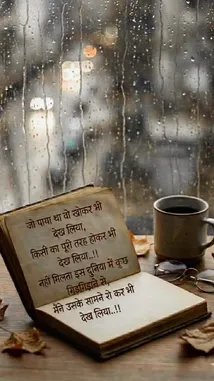 जो पाया था वो खोकर भी
देख लिया,
किसी का पूरी तरह होकर भी
देख लिया..!!
नहीं मिलता इस दुनिया में कुछ
गिड़गिड़ाने से,
मैंने उसके सामने रो कर भी
देख लिया..!!